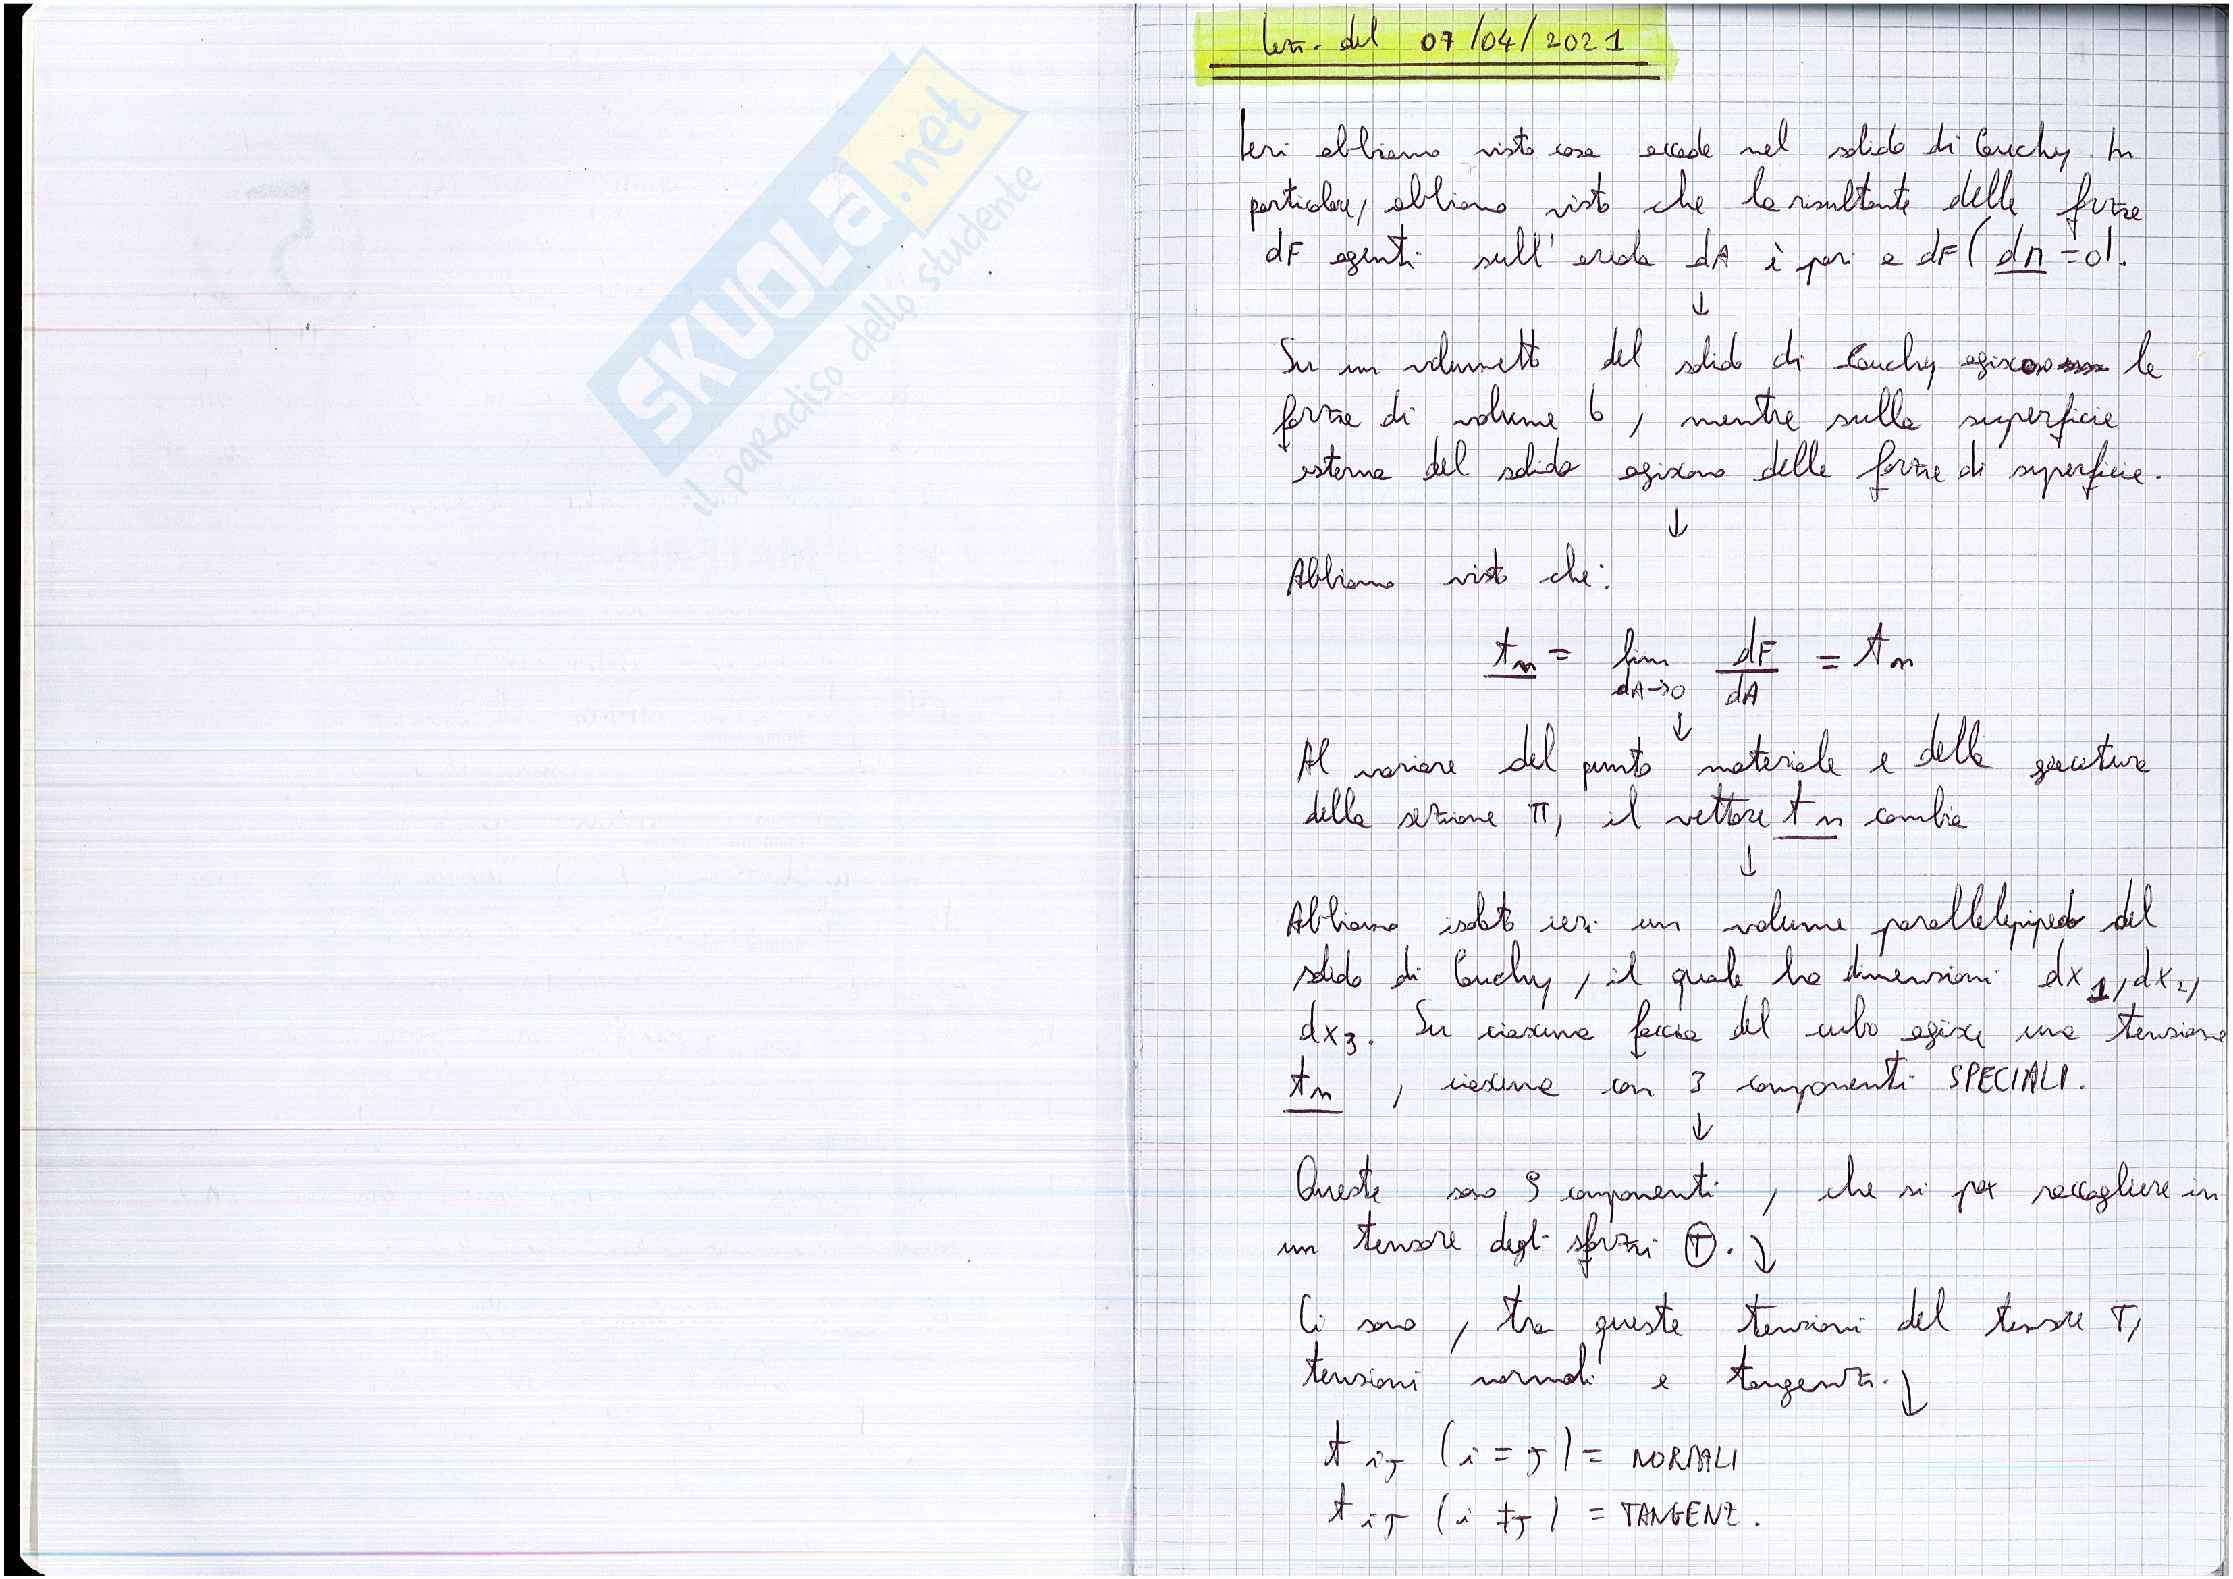 SKUOLA.net
il paradiso dello studente
Lez. del 07/04/2021
Ieri abbiamo visto cosa accade nel solido di Cauchy. In
particolare, abbiamo visto che la risultante delle forze
dF agenti sull'areola dA è pari a dF (dM = 0).
↓
Su un volumetto del solido di Cauchy agiscono le
forze di volume b, mentre sulla superficie
esterna del solido agiscono delle forze di superficie.
↓
Abbiamo visto che:
tn = lim dA→0 dF/dA = tn
↓
Al variare del punto materiale e della giacitura
della sezione π, il vettore tn cambia
↓
Abbiamo isolato ieri un volume parallelepipedo del
solido di Cauchy, il quale ha dimensioni dx1, dx2,
dx3. Su ciascuna faccia del cubo agisce una tensione
tn, ciascuna con 3 componenti SPECIALI.
↓
Queste sono 9 componenti, che si può raccogliere in
un tensore degli sforzi T. ↓
Ci sono, tra queste tensioni del tensore T,
tensioni normali e tangenz. ↓
t iJ (i = J) = NORMALI
t iJ (i ≠ J) = TANGENZ.